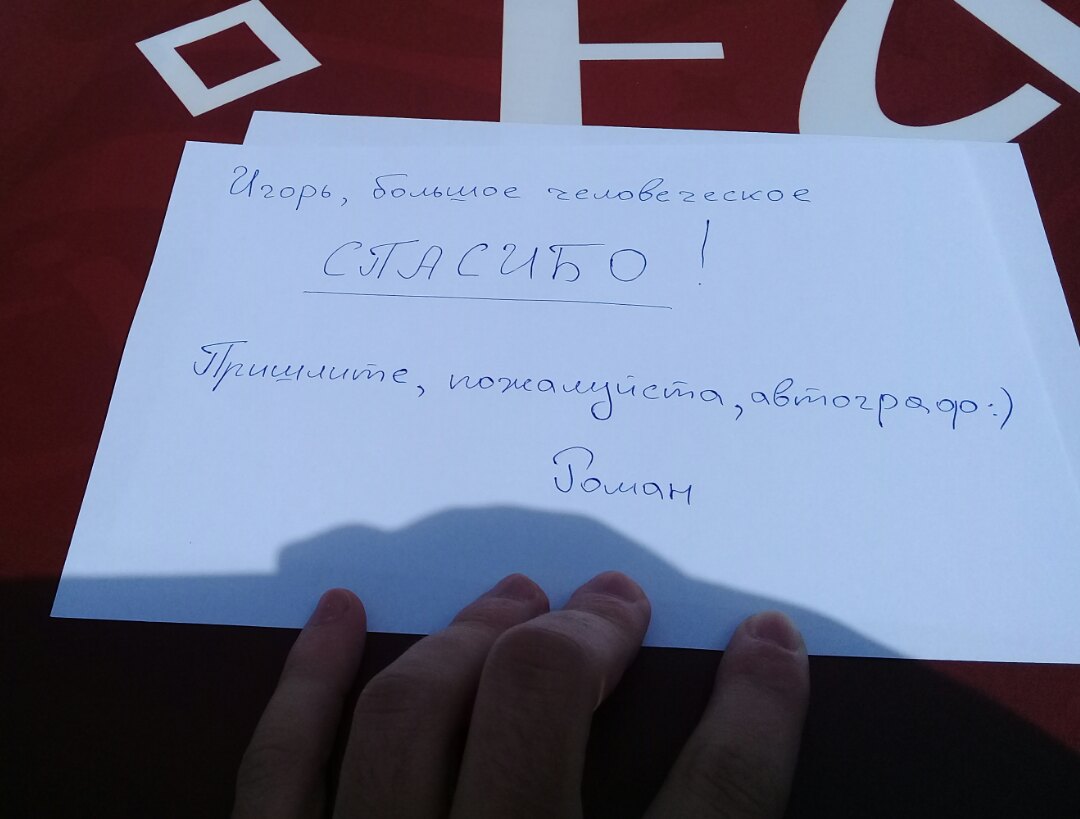 Игорь, большое человеческое
СПАСИБО!
Пришлите, пожалуйста, автограф:)
Роман